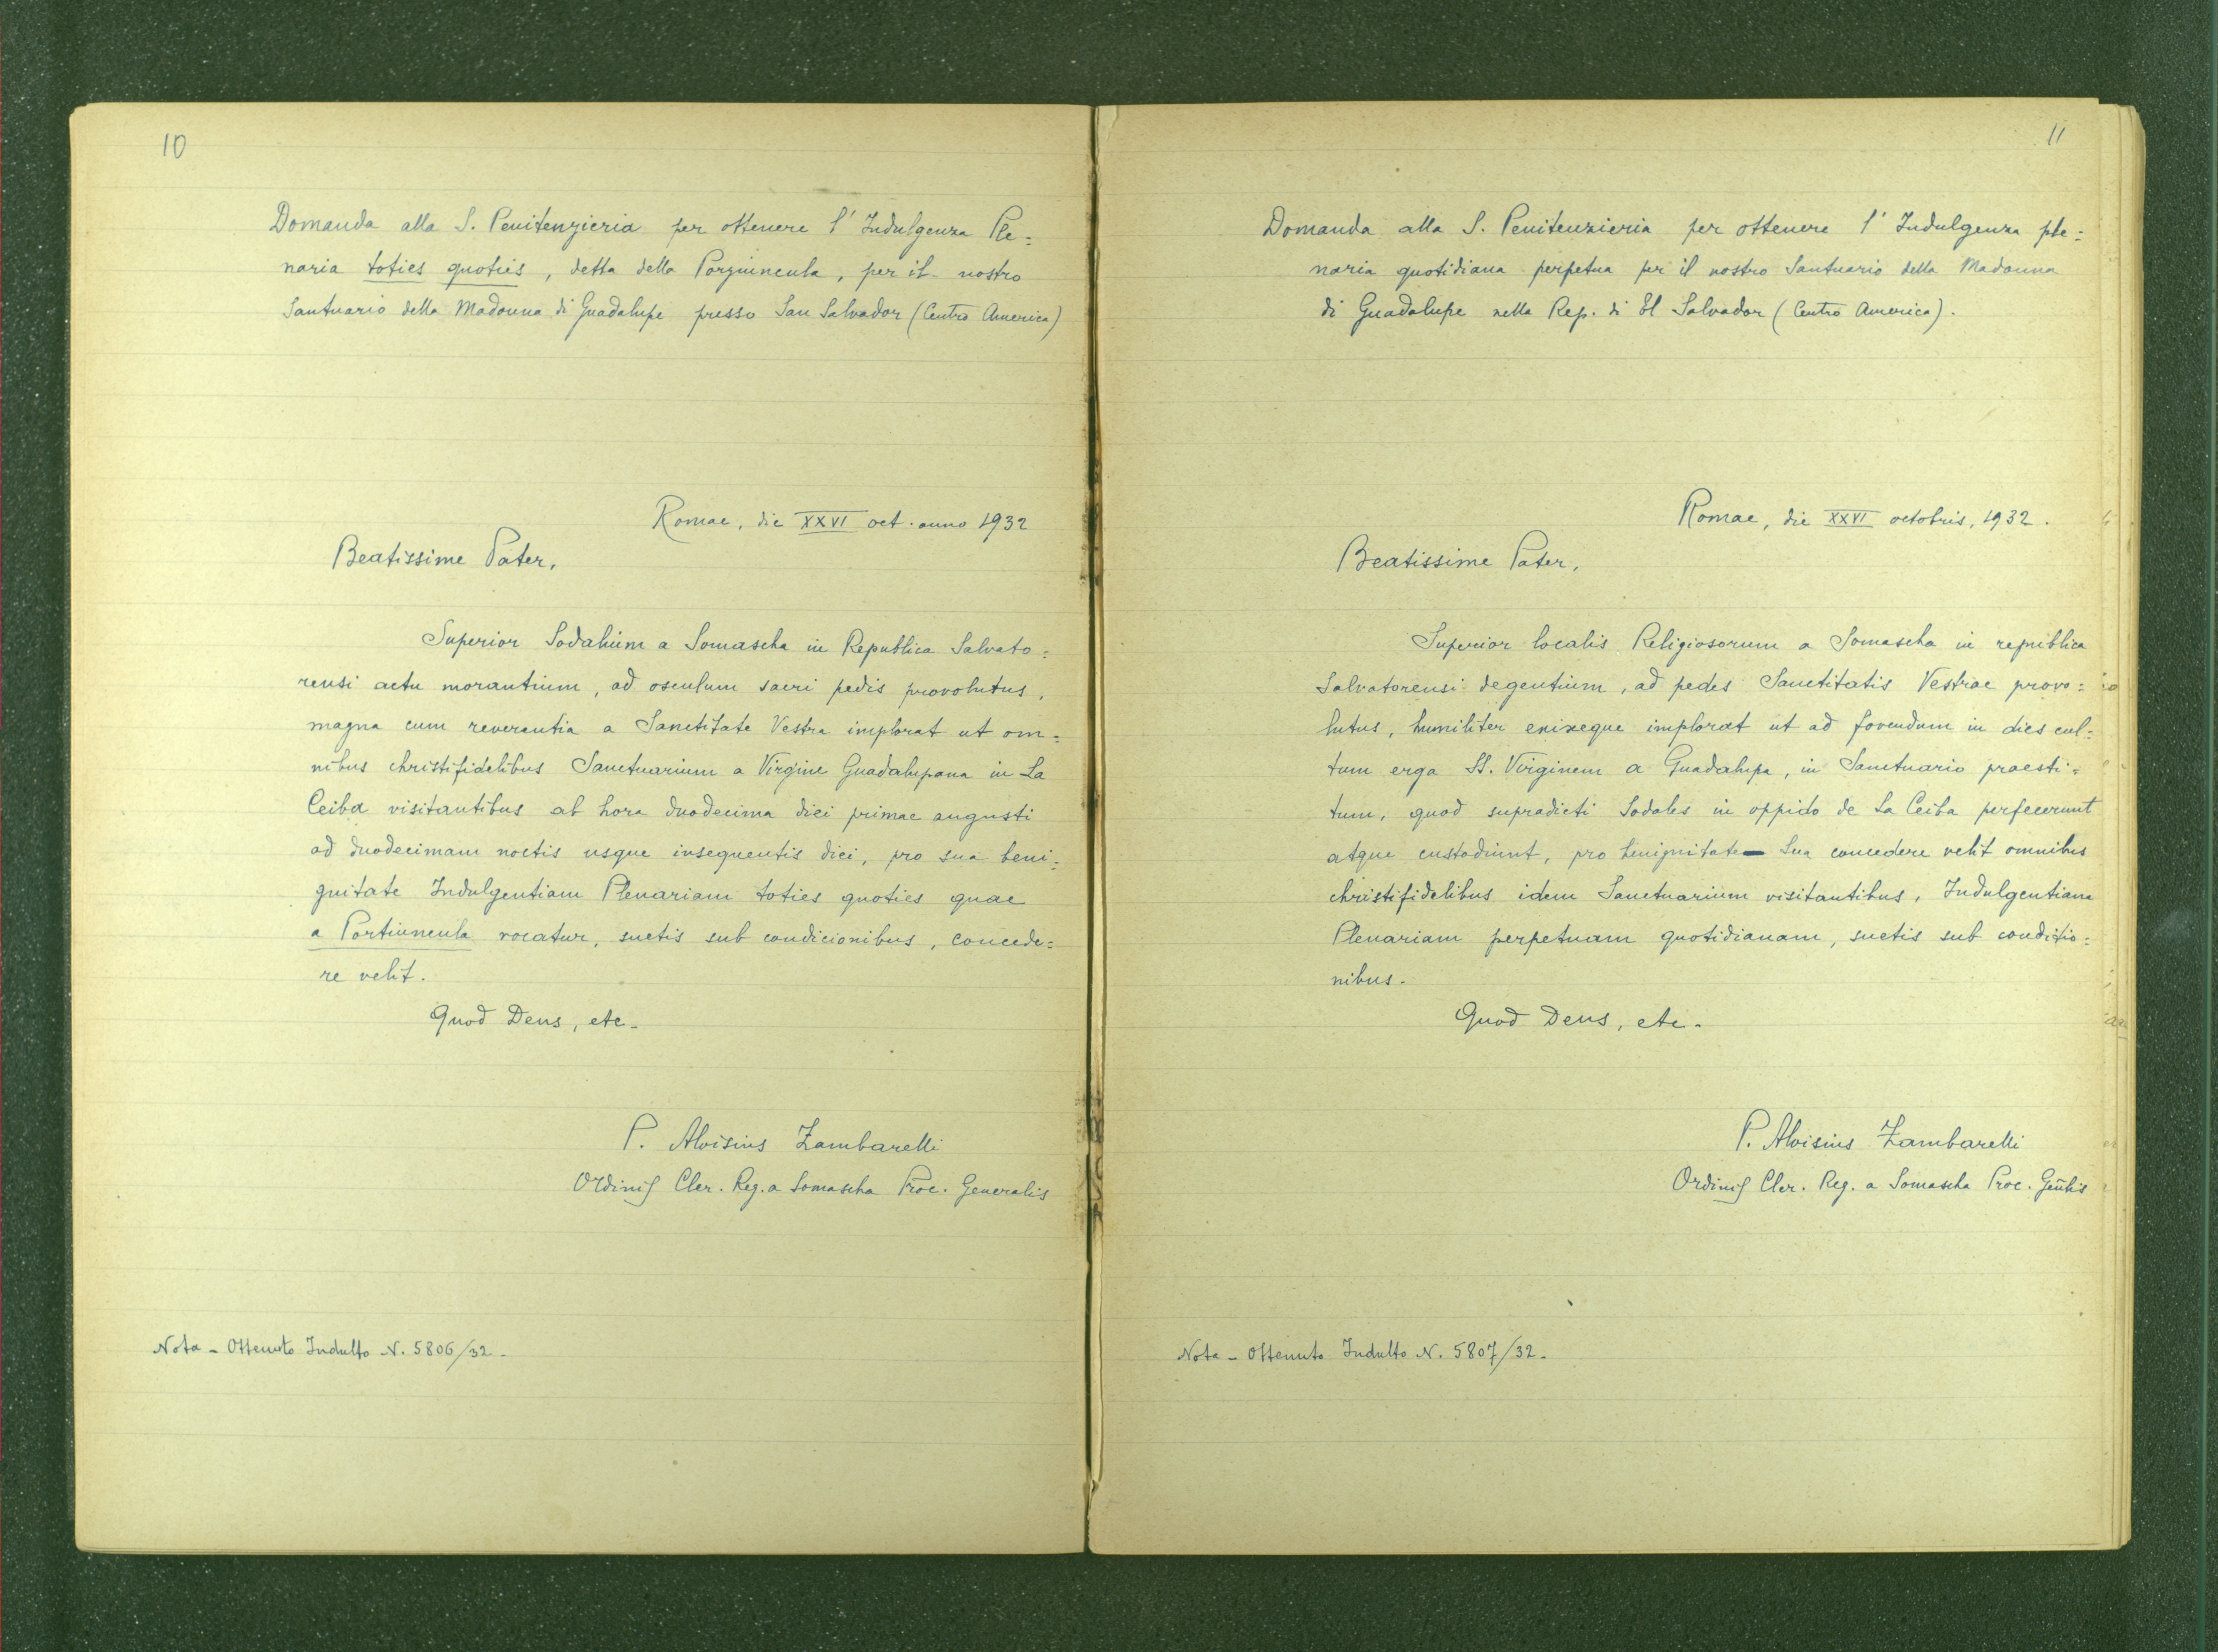 10
Domanda alla S. Penitenzieria per ottenere l' Indulgenza Ple=
naria toties quoties, detta della Porziuncula, per il nostro
Santuario della Madonna di Guadalupe presso San Salvador (Centro America)
Romae, die XXVI oct. anno 1932
Beatissime Pater,
Superior Sodalium a Somascha in Republica Salvato=
rensi actu morantium, ad osculum sacri pedis provolutus,
magna cum reverentia a Sanctitate Vestra implorat ut om=
nibus christifidelibus Sanctuarium a Virgine Guadalupana in La
Ceiba visitantibus ab hora duodecima diei primae augusti
ad duodecimam noctis usque insequentis diei, pro sua beni=
gnitate Indulgentiam Plenariam toties quoties quae
a Portiuncula vocatur, suetis sub condicionibus, concede=
re velit.
Quod Deus, etc.
P. Aloisius Zambarelli
Ordinis Cler. Reg. a Somascha Proc. Generalis
Nota - Ottenuto Indulto N. 5806/32.
11
Domanda alla S. Penitenzieria per ottenere l' Indulgenza ple=
naria quotidiana perpetua per il nostro Santuario della Madonna
di Guadalupe nella Rep. di El Salvador (Centro America).
Romae, die XXVI octobris, 1932.
Beatissime Pater,
Superior localis Religiosorum a Somascha in republica
Salvatorensi degentium, ad pedes Sanctitatis Vestrae provo=
lutus, humiliter enixeque implorat ut ad fovendum in dies cul=
tum erga SS. Virginem a Guadalupa, in Sanctuario praesti=
tum, quod supradicti Sodales in oppido de La Ceiba perfecerunt
atque custodiunt, pro benignitate Sua concedere velit omnibus
christifidelibus idem Sanctuarium visitantibus, Indulgentiam
Plenariam perpetuam quotidianam, suetis sub conditio=
nibus.
Quod Deus, etc.
P. Aloisius Zambarelli
Ordinis Cler. Reg. a Somascha Proc. Geñlis
Nota - Ottenuto Indulto N. 5807/32.